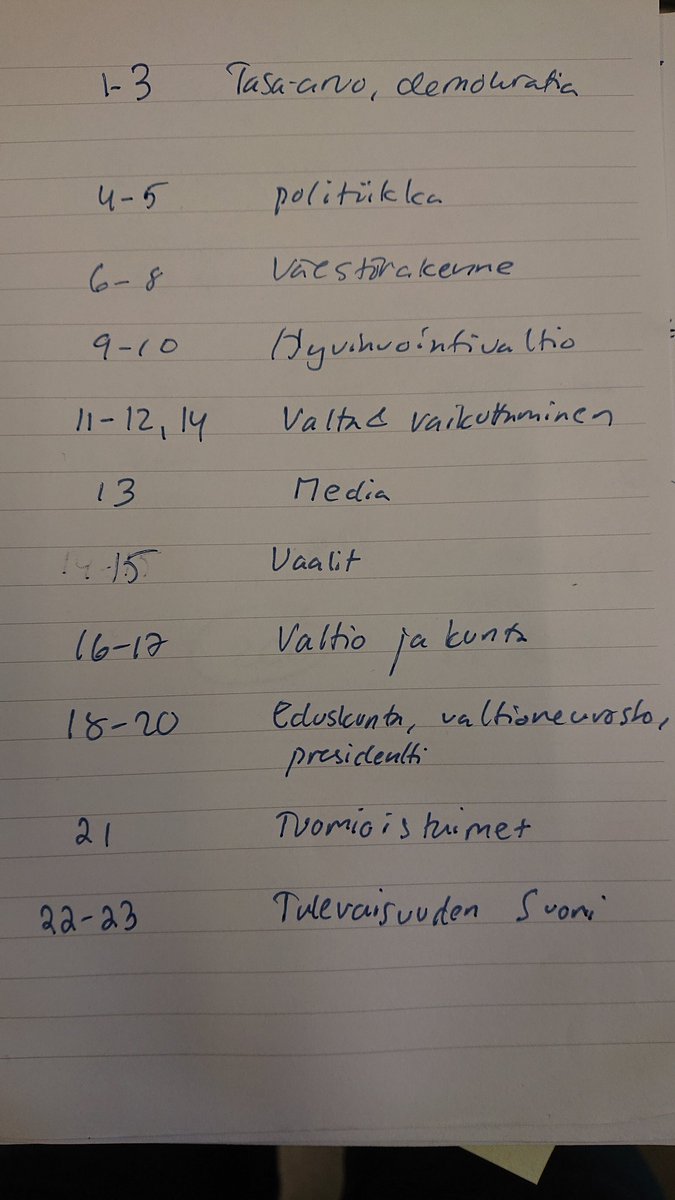 1-3 Tasa-arvo, demokratia
4-5 politiikka
6-8 Väestörakenne
9-10 Hyvinvointivaltio
11-12, 14 Valta & vaikuttaminen
13 Media
15 Vaalit
16-17 Valtio ja kunta
18-20 Eduskunta, valtioneuvosto,
presidentti
21 Tuomioistuimet
22-23 Tulevaisuuden Suomi